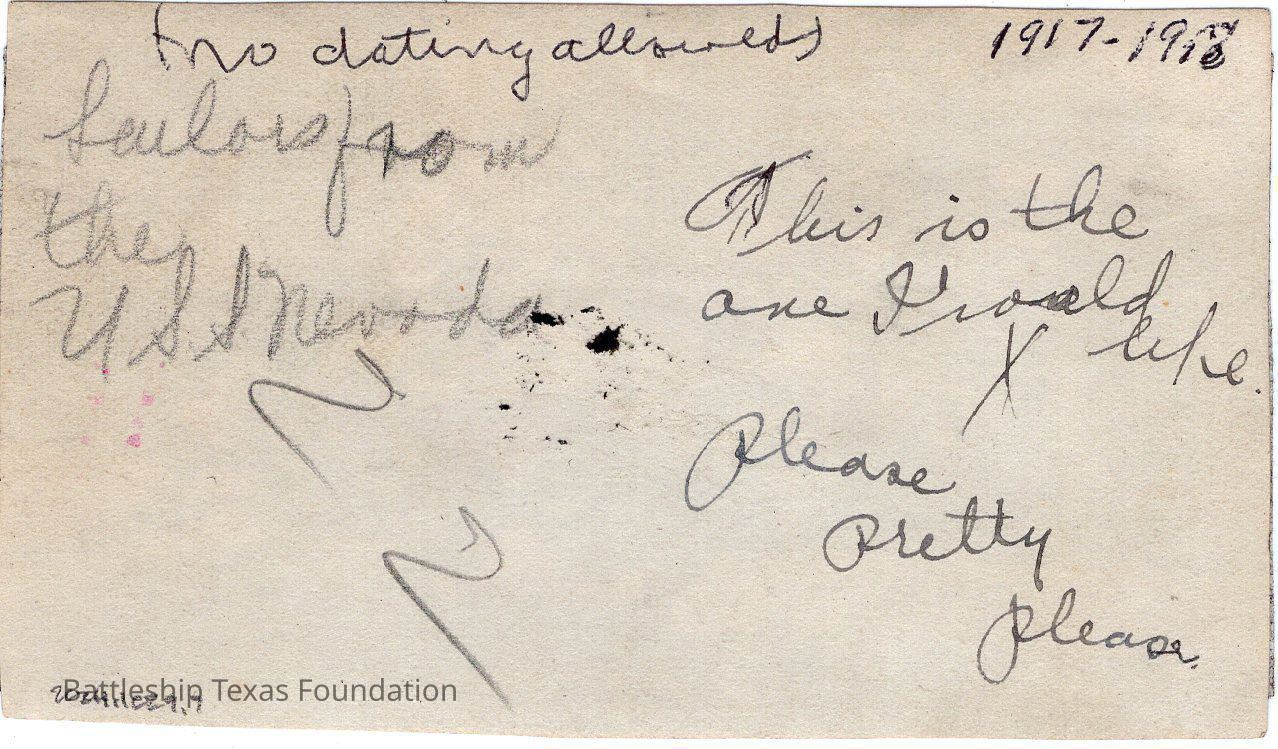 (no dating allowed)
1917-1918
Sailors from
the
U.S.S Nevada
This is the
one I would
like.
X
Please
pretty
please.
Battleship Texas Foundation